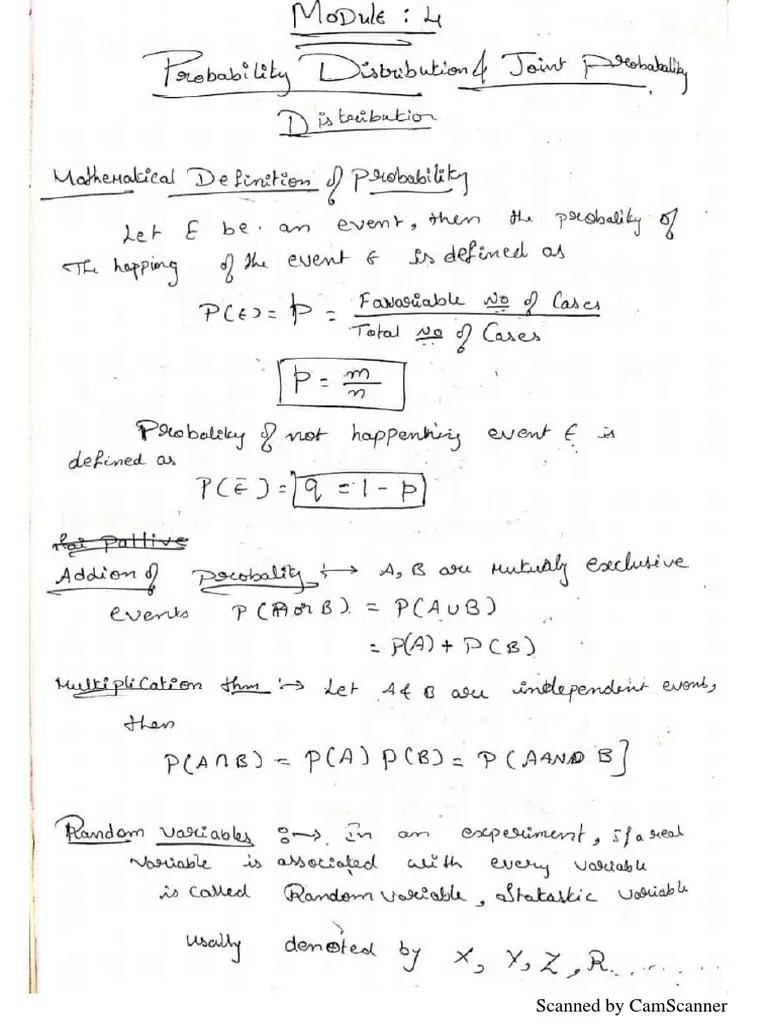 MODULE : 4
Probability Distribution & Joint probability
Distribution
Mathematical Definition of probability
Let E be an event, then the probality of
The happing of the event E is defined as
P(E) = p = Favariable No of Cases
Total No of Cases
p = m
n
Probality of not happenting event E is
defined as
P(Ē) = q = 1 - p
Addion of probality :→ A, B are Mutualy exclusive
events P(A or B) = P(A∪B)
= P(A) + P(B)
Multiplication thm :→ Let A & B are independent events,
then
P(A∩B) = P(A) P(B) = P(A AND B]
Random variables :→ In an experiment, if a real
variable is associated with every variable
is called Random variable, Statastic variable
usally denoted by X, Y, Z, R.......
Scanned by CamScanner